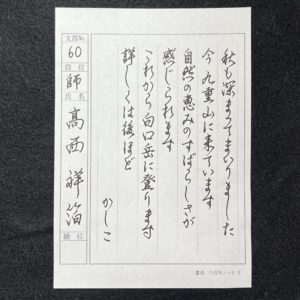 秋も深まってまいりました
今九重山に来ています
自然の恵みのすばらしさが
感じられます
これから白口岳に登ります
詳しくは後ほど
かしこ
支部No.
60
段位
師
氏名
高西祥箔
級位